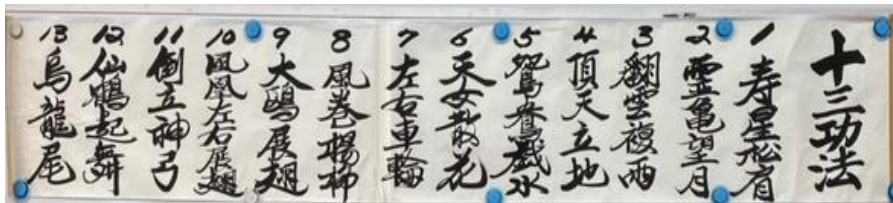 十三功法
1 寿星松肩
2 霊亀望月
3 翻雲複雨
4 頂天立地
5 鴛鴦戯水
6 天女散花
7 左右車輪
8 風巻楊柳
9 大鵬展翅
10 鳳凰左右展翅
11 倒立神弓
12 仙鶴起舞
13 烏龍尾